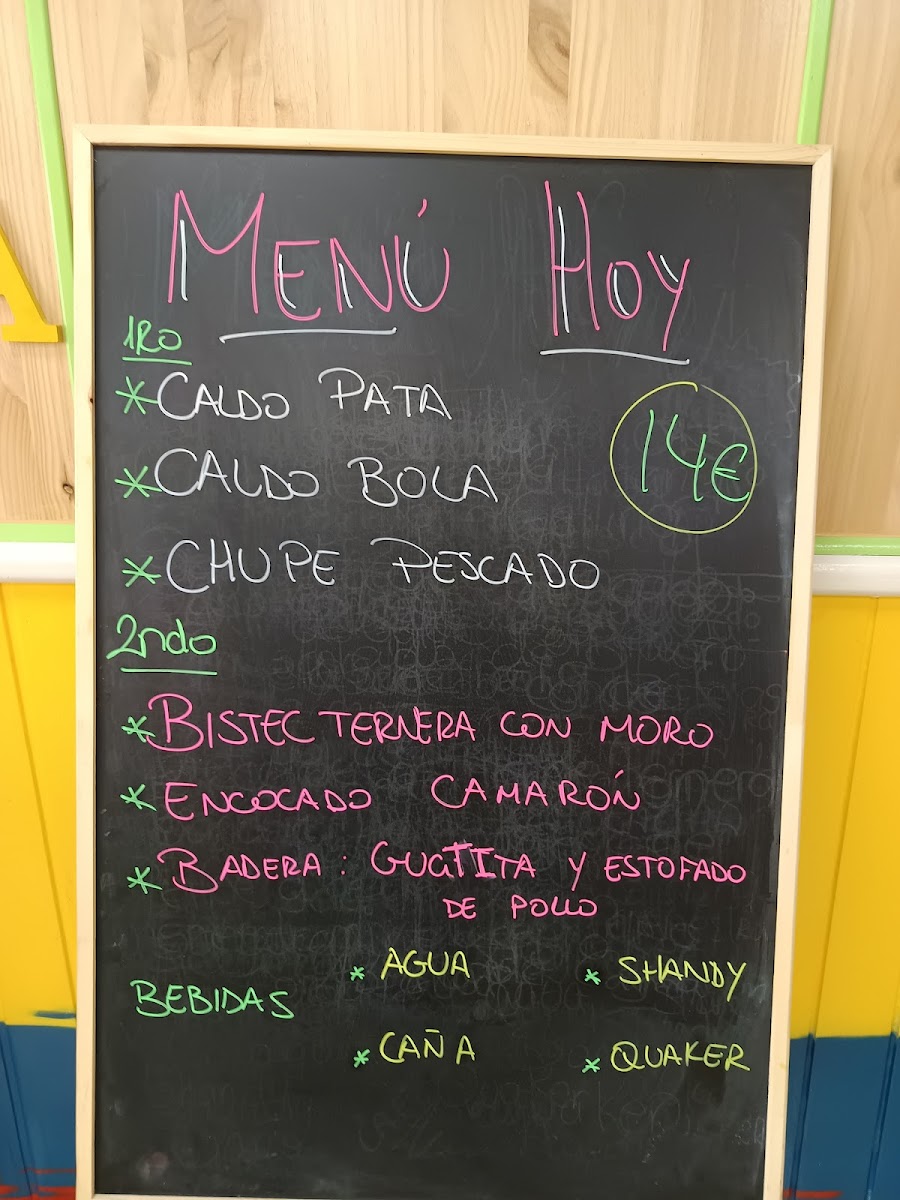 MENÚ HOY
1RO
* CALDO PATA
14€
* CALDO BOLA
* CHUPE PESCADO
2ndo
* BISTEC TERNERA CON MORO
* ENCOCADO CAMARÓN
* BADERA: GUATITA Y ESTOFADO
DE POLLO
BEBIDAS
* AGUA * SHANDY
* CAÑA * QUAKER
A